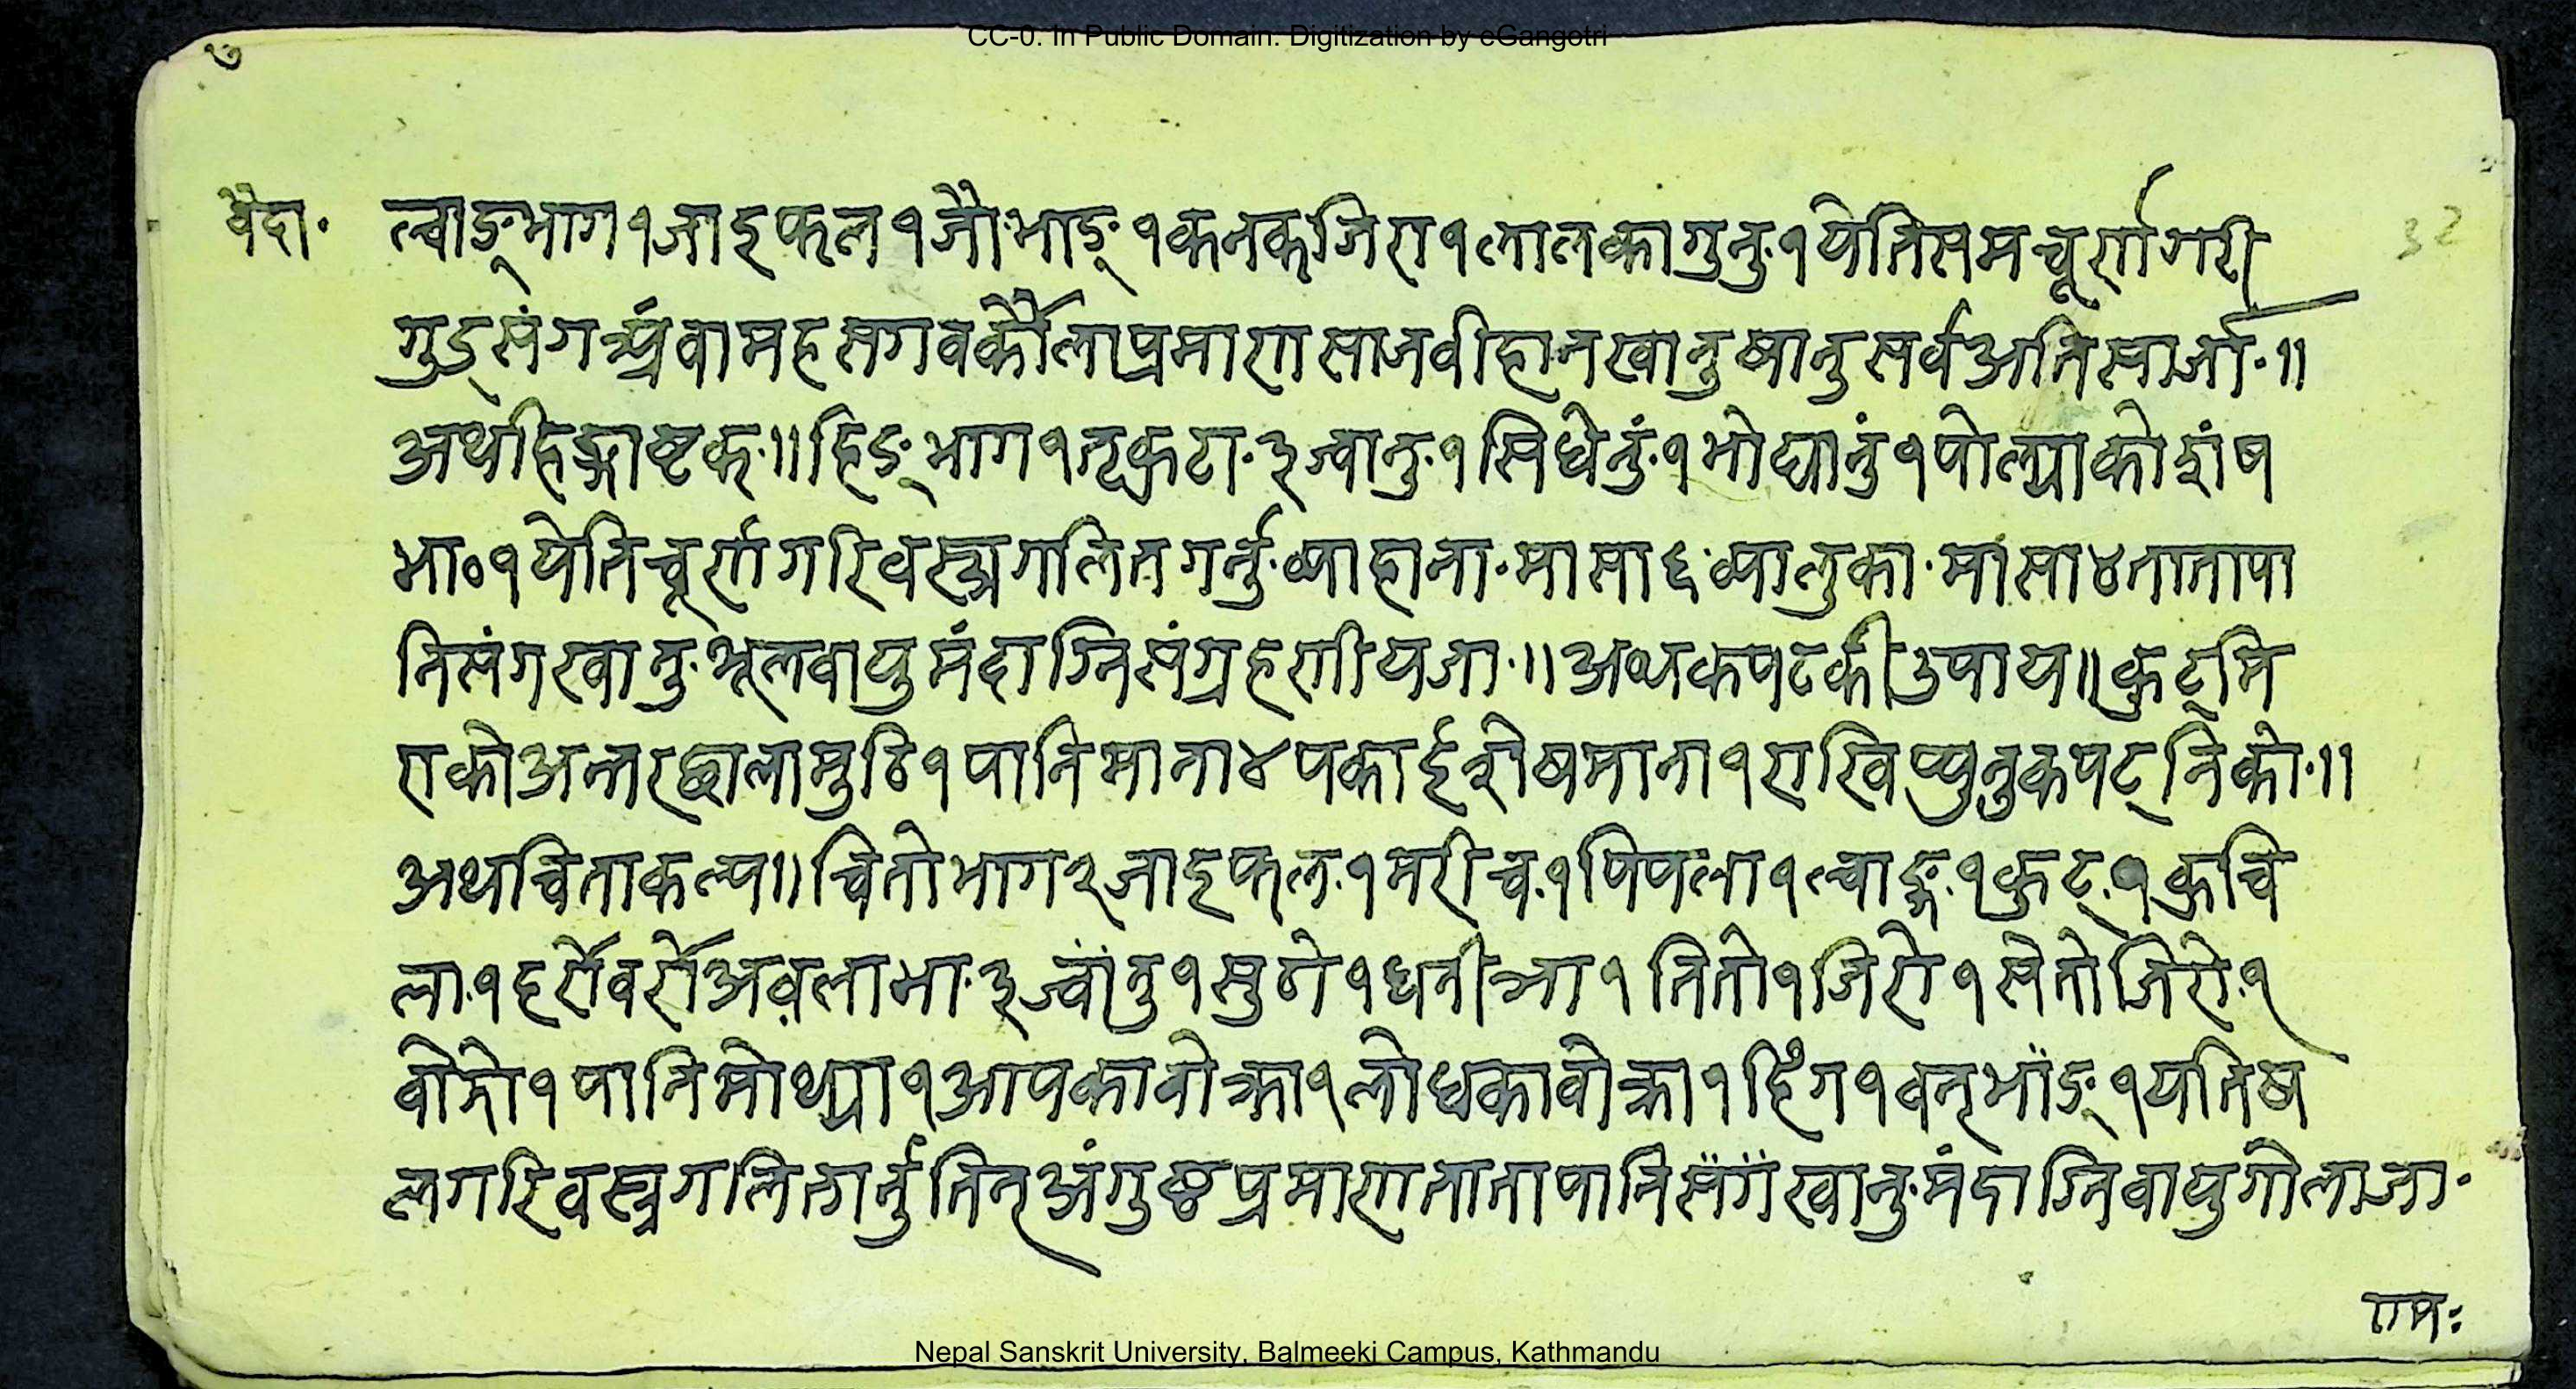 CC-0. In Public Domain. Digitization by eGangotri
वैदा॰
ल्वाङ्भाग१जाइफल१जौ॰भाङ्१कनकजिरा१लालकागुनु॰१येतिसमचूर्णगरी
गुड्संग वामहसगव प्रमाणसाजवीहानखानुषानुसर्वअतिसार्जा॰॥
अथहिङ्गाष्टक॰॥हिङ्भाग१तृकटा॰३ज्वानु॰१सिधेनुं॰१ १पोल्याकोशंष
भा०१येतिचूर्णगरिवस्त्रगालितगर्नु॰व्याहाना॰मासा६व्यालुका॰मासा४तातापा
निसंगखानु॰शूलवायुमंदाग्निसंग्रहणीयजा॰॥अथकपटकीउपाय॥कुट्मि
राकोअन्तरछालामुठि१पानिमाना४पकाईशेषमाना१राखिप्युनुकपट्निको॰॥
अथचिताकल्प॥चितोभाग२जाइफल॰१मरीच॰१पिपला१ल्वाङ्ग॰१कुट्॰१कुचि
ला॰१हर्रोवर्रोअवलाभा॰३ज्वांनु१सुठो१धनीञा१तितो१जिरो१सेतोजिरो॰१
वोझो१पानिमोथ्या१आपकावोक्रा१लोधकावोक्रा१हिंग१वनृभांङ्१यतिष
लगरिवस्त्रगलितगर्नुतिनृअंगुष्ठप्रमाणतातापानिसँगँखानु॰मंदाग्निवायुगोलाजा॰
Nepal Sanskrit University, Balmeeki Campus, Kathmandu